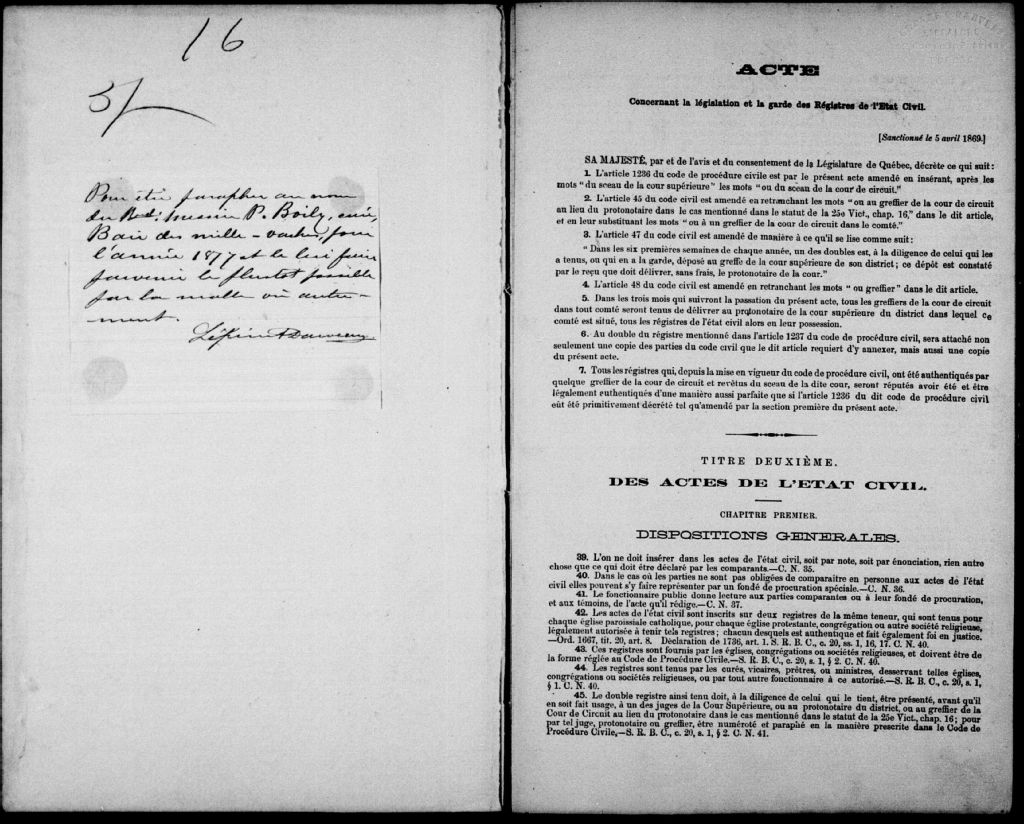 16
5/
Pour être parapher au nom
du Revd: Messire P. Boily, curé,
Baie des mille-vaches, pour
l'année 1877 et le lui faire
parvenir le plustot possible
par la malle ou autre-
ment.
ACTE
Concernant la législation et la garde des Régistres de l'Etat Civil.
[Sanctionné le 5 avril 1869.]
SA MAJESTÉ, par et de l'avis et du consentement de la Législature de Québec, décrète ce qui suit :
1. L'article 1236 du code de procédure civile est par le présent acte amendé en insérant, après les
mots "du sceau de la cour supérieure" les mots "ou du sceau de la cour de circuit."
2. L'article 45 du code civil est amendé en retranchant les mots "ou au greffier de la cour de circuit
au lieu du protonotaire dans le cas mentionné dans le statut de la 25e Vict., chap. 16," dans le dit article,
et en leur substituant les mots "ou à un greffier de la cour de circuit dans le comté."
3. L'article 47 du code civil est amendé de manière à ce qu'il se lise comme suit :
"Dans les six premières semaines de chaque année, un des doubles est, à la diligence de celui qui les
a tenus, ou qui en a la garde, déposé au greffe de la cour supérieure de son district ; ce dépôt est constaté
par le reçu que doit délivrer, sans frais, le protonotaire de la cour."
4. L'article 48 du code civil est amendé en retranchant les mots "ou greffier" dans le dit article.
5. Dans les trois mois qui suivront la passation du présent acte, tous les greffiers de la cour de circuit
dans tout comté seront tenus de délivrer au protonotaire de la cour supérieure du district dans lequel ce
comté est situé, tous les régistres de l'état civil alors en leur possession.
6. Au double du régistre mentionné dans l'article 1237 du code de procédure civil, sera attaché non
seulement une copie des parties du code civil que le dit article requiert d'y annexer, mais aussi une copie
du présent acte.
7. Tous les régistres qui, depuis la mise en vigueur du code de procédure civil, ont été authentiqués par
quelque greffier de la cour de circuit et revêtus du sceau de la dite cour, seront réputés avoir été et être
légalement authentiqués d'une manière aussi parfaite que si l'article 1236 du dit code de procédure civil
eût été primitivement décrété tel qu'amendé par la section première du présent acte.
TITRE DEUXIÈME.
DES ACTES DE L'ETAT CIVIL.
CHAPITRE PREMIER.
DISPOSITIONS GENERALES.
39. L'on ne doit insérer dans les actes de l'état civil, soit par note, soit par énonciation, rien autre
chose que ce qui doit être déclaré par les comparants.—C. N. 35.
40. Dans le cas où les parties ne sont pas obligées de comparaitre en personne aux actes de l'état
civil elles peuvent s'y faire représenter par un fondé de procuration spéciale.—C. N. 36.
41. Le fonctionnaire public donne lecture aux parties comparantes ou à leur fondé de procuration,
et aux témoins, de l'acte qu'il rédige.—C. N. 37.
42. Les actes de l'état civil sont inscrits sur deux registres de la même teneur, qui sont tenus pour
chaque église paroissiale catholique, pour chaque église protestante, congrégation ou autre société religieuse,
légalement autorisée à tenir tels registres ; chacun desquels est authentique et fait également foi en justice.
—Ord. 1667, tit. 20, art. 8. Déclaration de 1736, art. 1. S. R. B. C., c. 20, ss. 1, 16, 17. C. N. 40.
43. Ces registres sont fournis par les églises, congrégations ou sociétés religieuses, et doivent être de
la forme réglée au Code de Procédure Civile.—S. R. B. C., c. 20, s. 1, § 2. C. N. 40.
44. Les registres sont tenus par les curés, vicaires, prêtres, ou ministres, desservant telles églises,
congrégations ou sociétés religieuses, ou par tout autre fonctionnaire à ce autorisé.—S. R. B. C., c. 20, s. 1,
§ 1. C. N. 40.
45. Le double registre ainsi tenu doit, à la diligence de celui qui le tient, être présenté, avant qu'il
en soit fait usage, à un des juges de la Cour Supérieure, ou au protonotaire du district, ou au greffier de la
Cour de Circuit au lieu du protonotaire dans le cas mentionné dans le statut de la 25e Vict., chap. 16 ; pour
par tel juge, protonotaire ou greffier, être numéroté et paraphé en la manière prescrite dans le Code de
Procédure Civile,—S. R. B. C., c. 20, s. 1, § 2. C. N. 41.